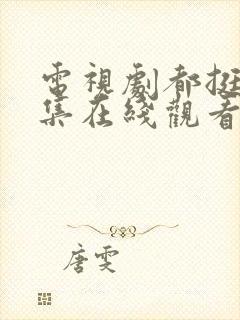 電視劇都挺
集在綫觀看
唐雯